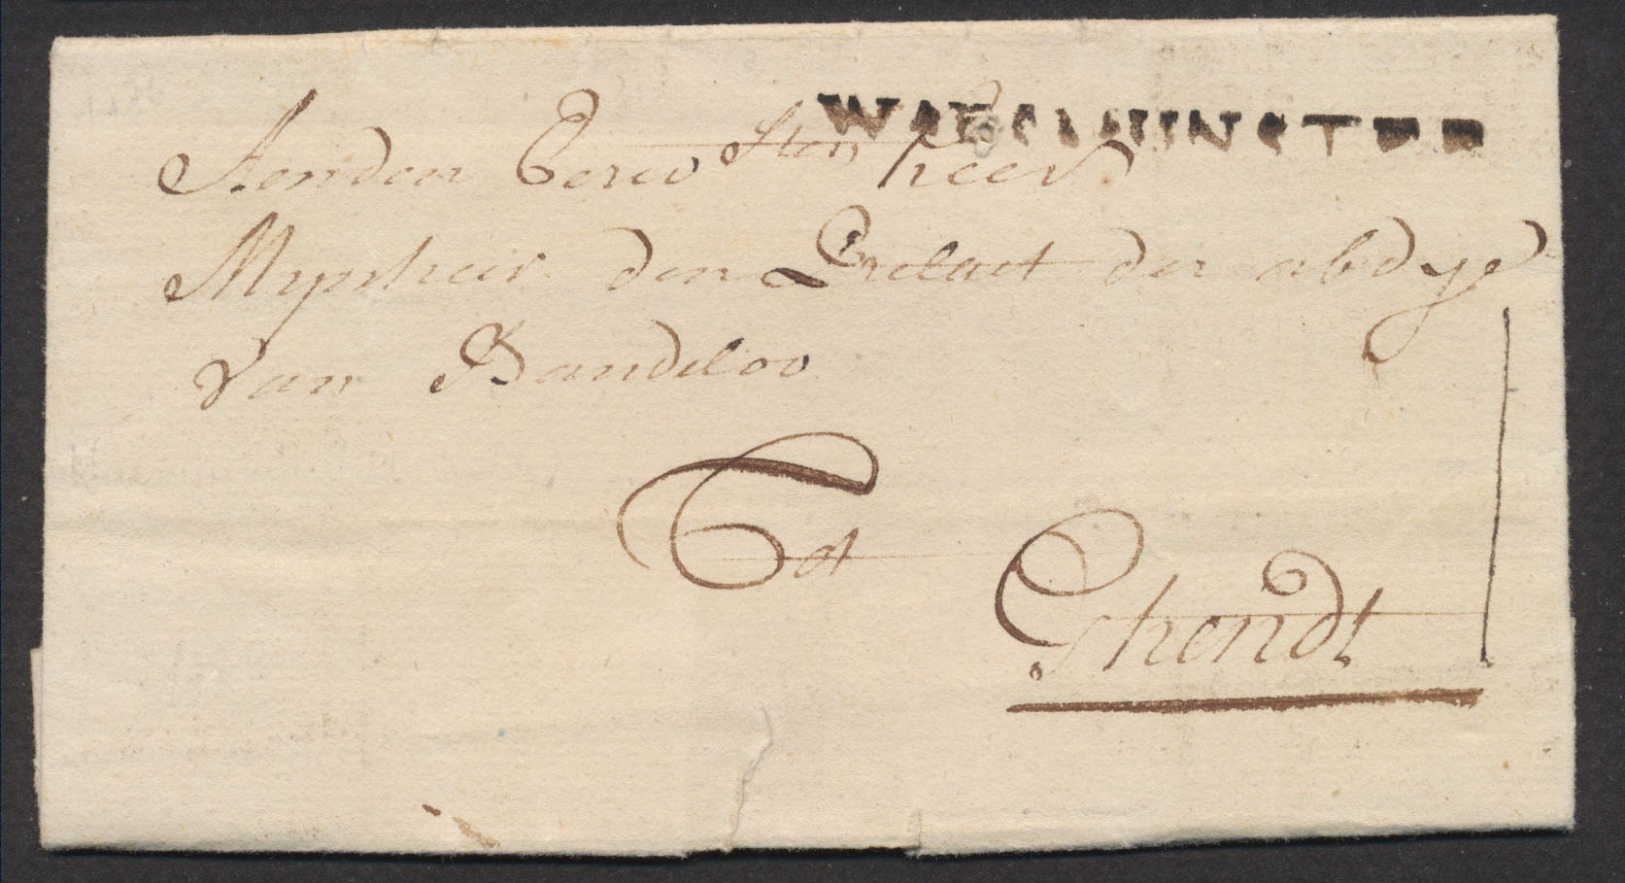 WAESMUNSTER
Aenden Eerw Sten heer
Mynheer den Prelaet der abdye
van Baudeloo
Tot
Ghendt